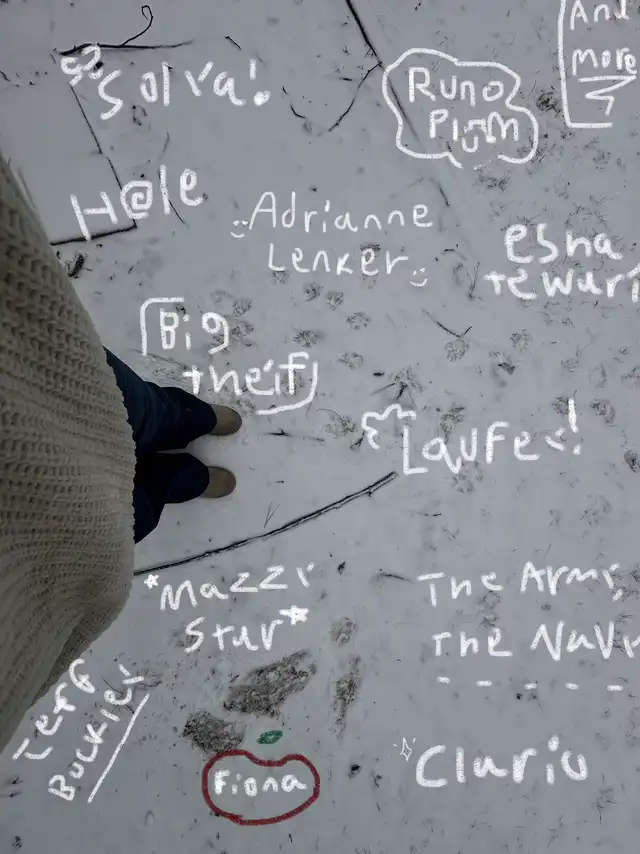 Solva!
Runo
Plum
And
more
H@le
Adrianne
Lenker
esha
tewari
Big
theif
Laufey!
*Mazzy
Star*
The Army,
The Navy
Jeff
Buckley
Fiona
Clario